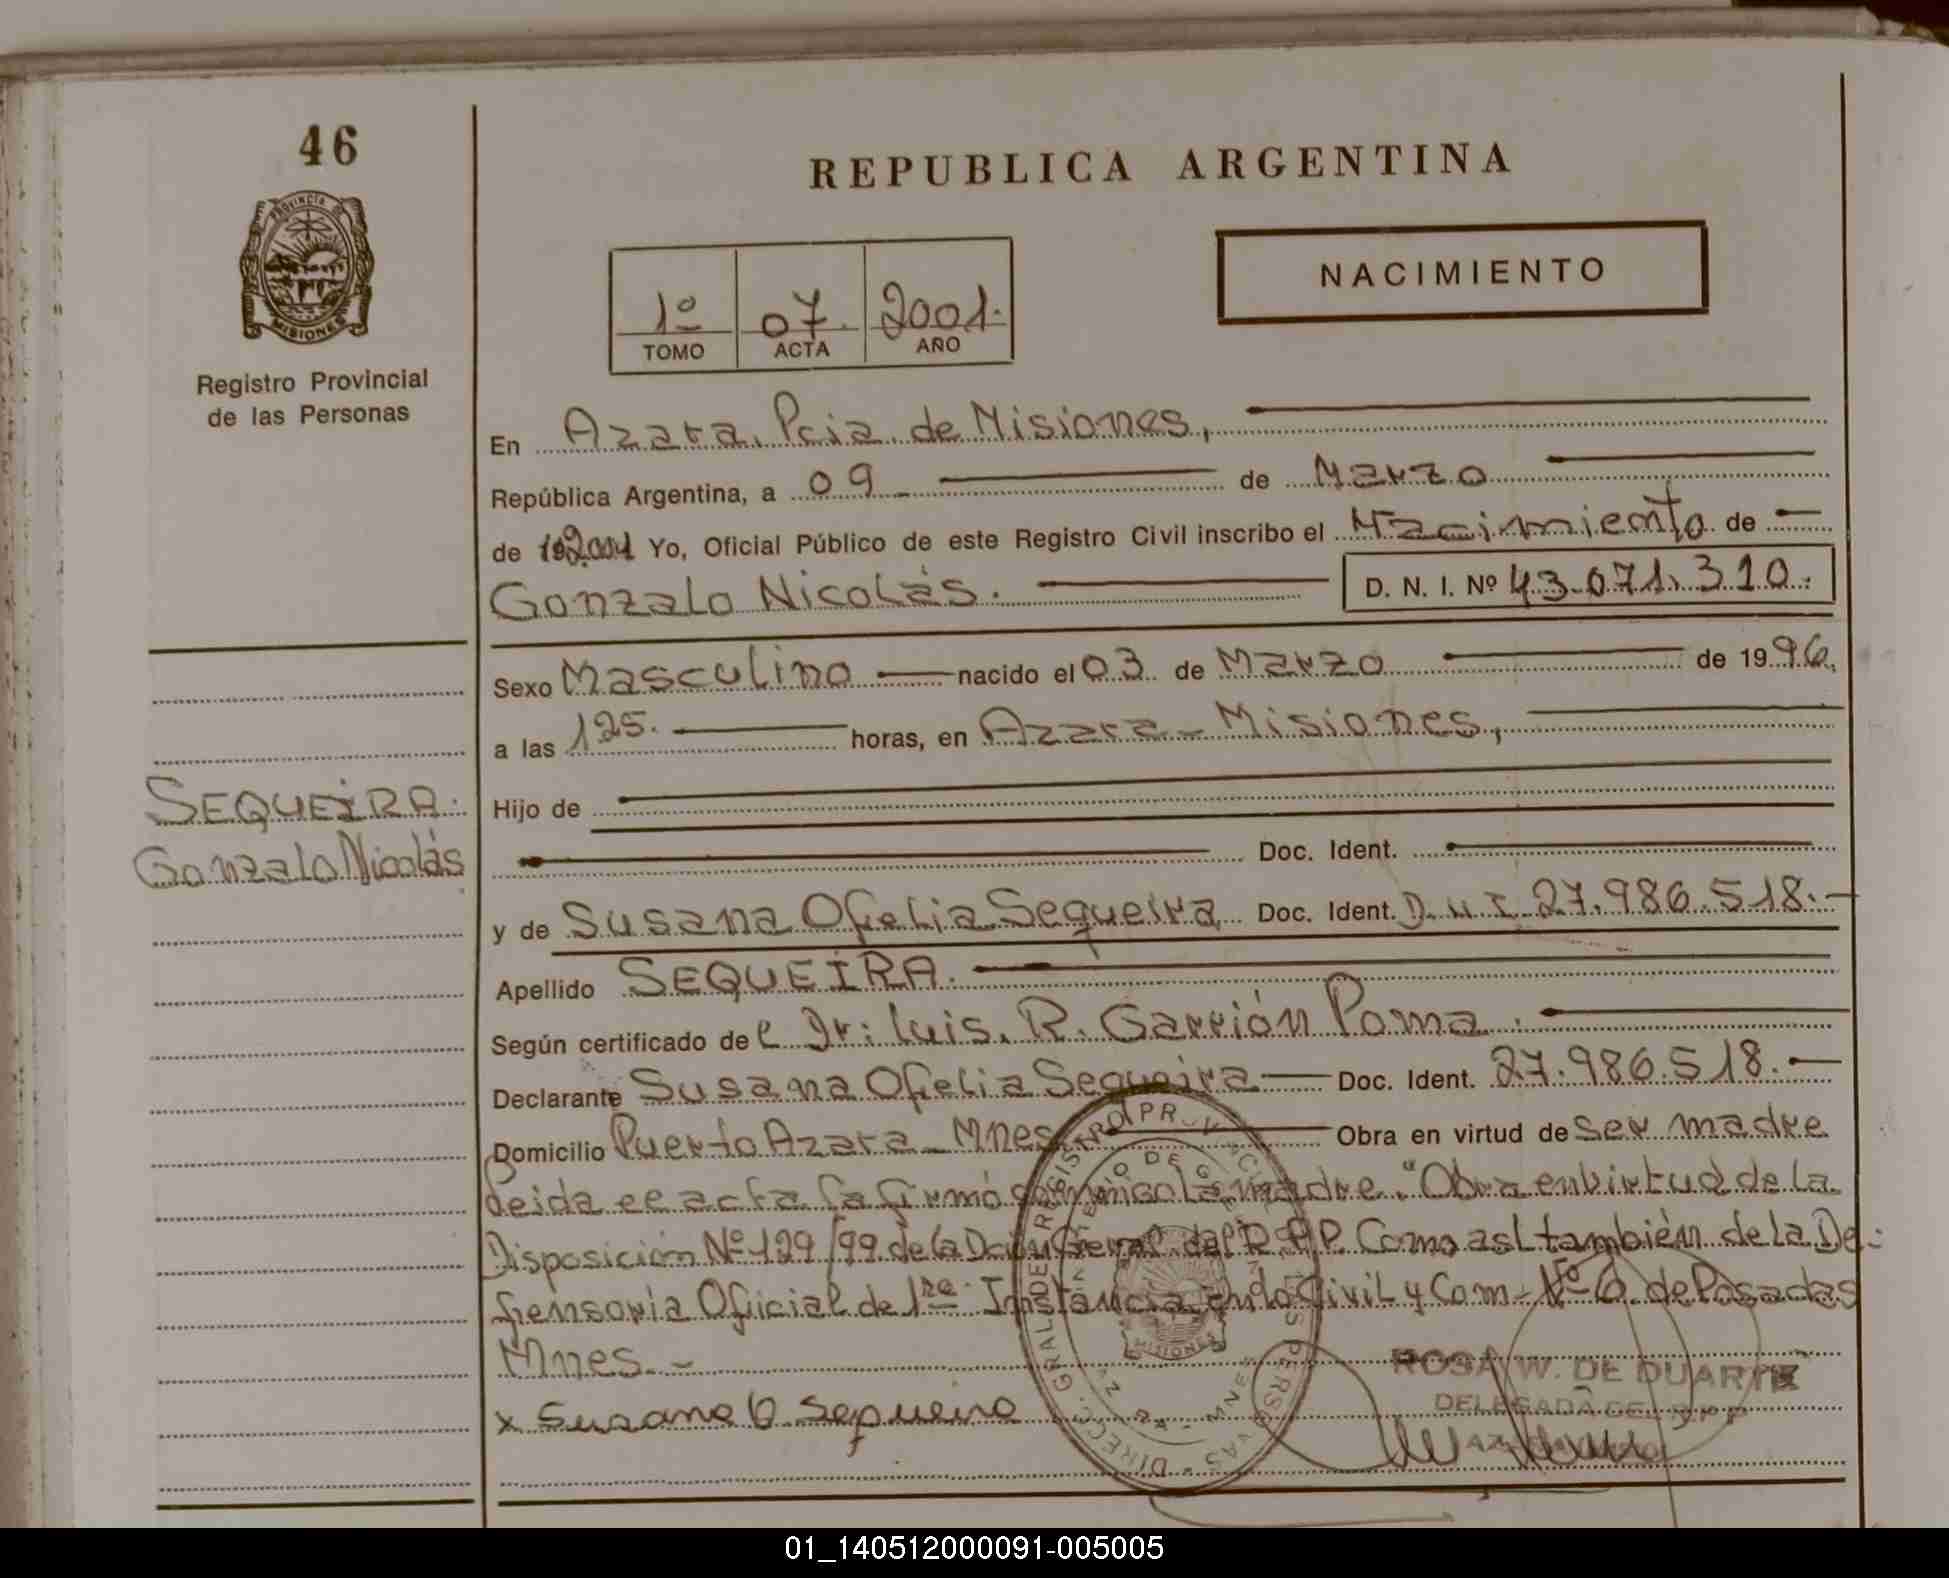 46
PROVINCIA DE
MISIONES
Registro Provincial
de las Personas
REPUBLICA ARGENTINA
NACIMIENTO
1º 07. 2001.
TOMO ACTA AÑO
En Azara, Pcia. de Misiones,
República Argentina, a 09 de Marzo
de 2001 Yo, Oficial Público de este Registro Civil inscribo el Nacimiento de
Gonzalo Nicolás. D. N. I. Nº 43.071.310.
Sexo Masculino nacido el 03 de Marzo de 1996.
a las 1,25. horas, en Azara - Misiones,
Hijo de
Doc. Ident.
y de Susana Ofelia Sequeira Doc. Ident. D.N.I. 27.986.518.-
Apellido SEQUEIRA.
Según certificado del Dr: Luis. R. Carrión Poma.
Declarante Susana Ofelia Sequeira Doc. Ident. 27.986.518.
Domicilio Puerto Azara - Mnes Obra en virtud de ser madre
Leida el acta la firmó conmigo la madre. "Obra en virtud de la
Disposición Nº 129/99 de la Dcción Geral del R.P.P. Como asi también de la De-
fensoria Oficial de 1ra Instancia en lo Civil y Com - Nº 6 de Posadas
Mnes. -
x Susana O Sequeira
SEQUEIRA.
Gonzalo Nicolás
ROSA W. DE DUARTE
DELEGADA DEL R P P
01_140512000091-005005